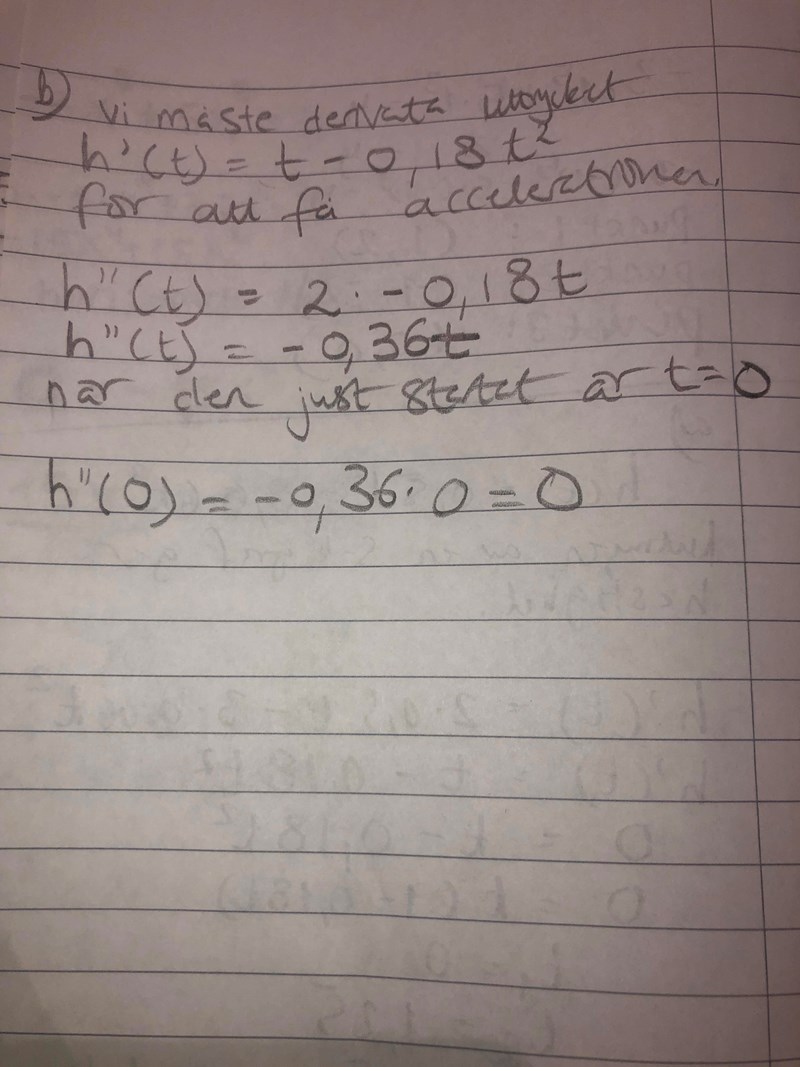 b) Vi måste derivata uttrycket
h'(t) = t - 0,18t²
för att få accelerationen.
h''(t) = 2 · - 0,18t
h''(t) = - 0,36t
när den just startat är t=0
h''(0) = -0,36 · 0 = 0